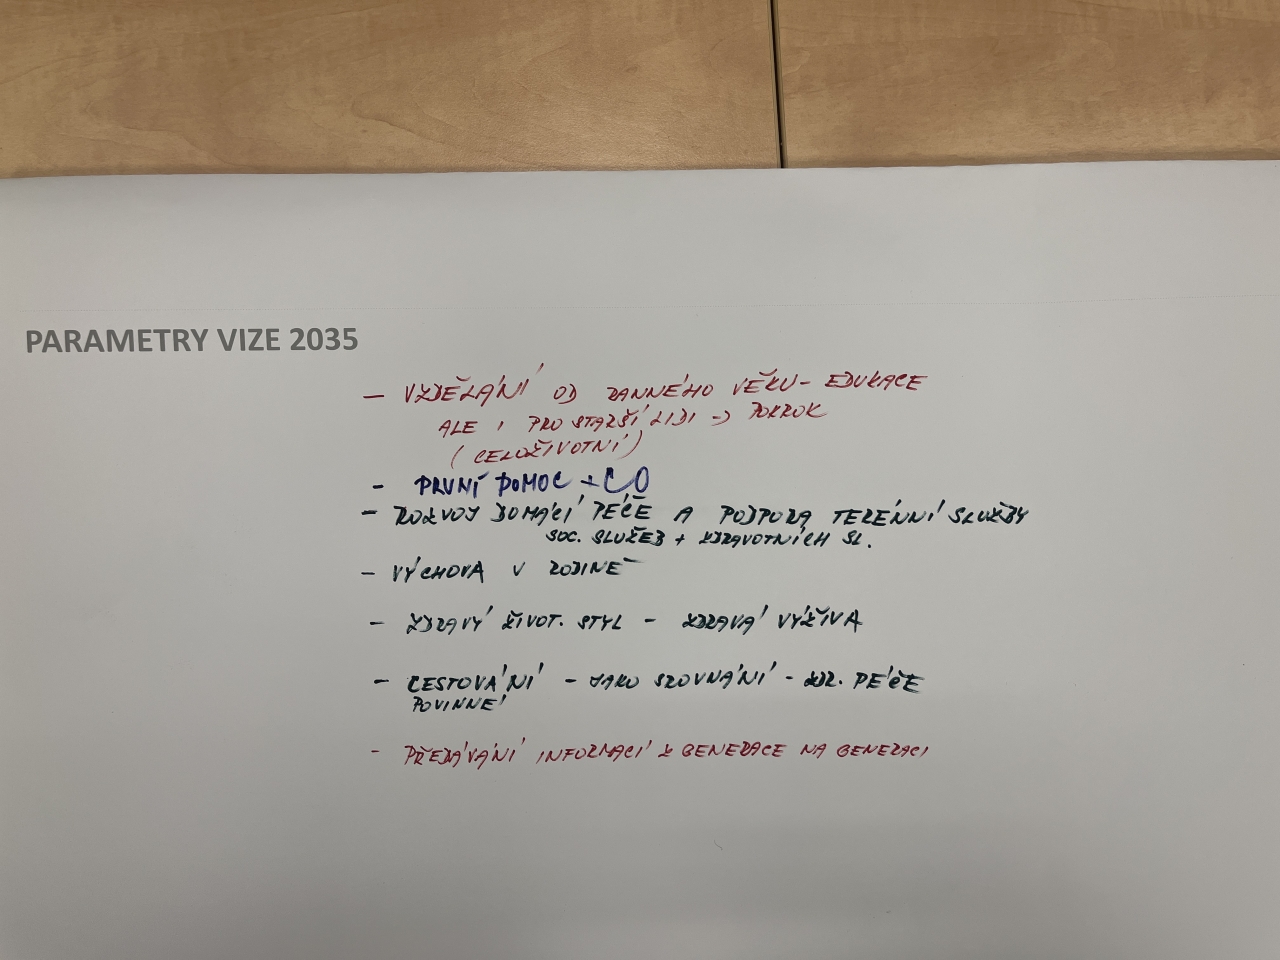 PARAMETRY VIZE 2035
- VZDĚLÁNÍ OD RANNÉHO VĚKU - EDUKACE
ALE I PRO STARŠÍ LIDI -> POKROK
(CELOŽIVOTNÍ)
- PRVNÍ POMOC + CO
- ROZVOJ DOMÁCÍ PÉČE A PODPORA TERÉNNÍ SLUŽBY
SOC. SLUŽEB + ZDRAVOTNÍCH SL.
- VÝCHOVA V RODINĚ
- ZDRAVÝ ŽIVOT. STYL - ZDRAVÁ VÝŽIVA
- CESTOVÁNÍ - JAKO SROVNÁNÍ - ZDR. PÉČE
POVINNÉ
- PŘEDÁVÁNÍ INFORMACÍ Z GENERACE NA GENERACI